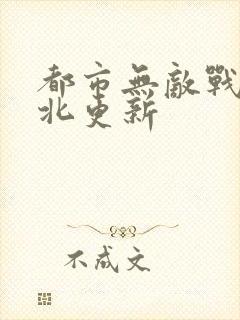 都市無敵戰
北更新
不成文